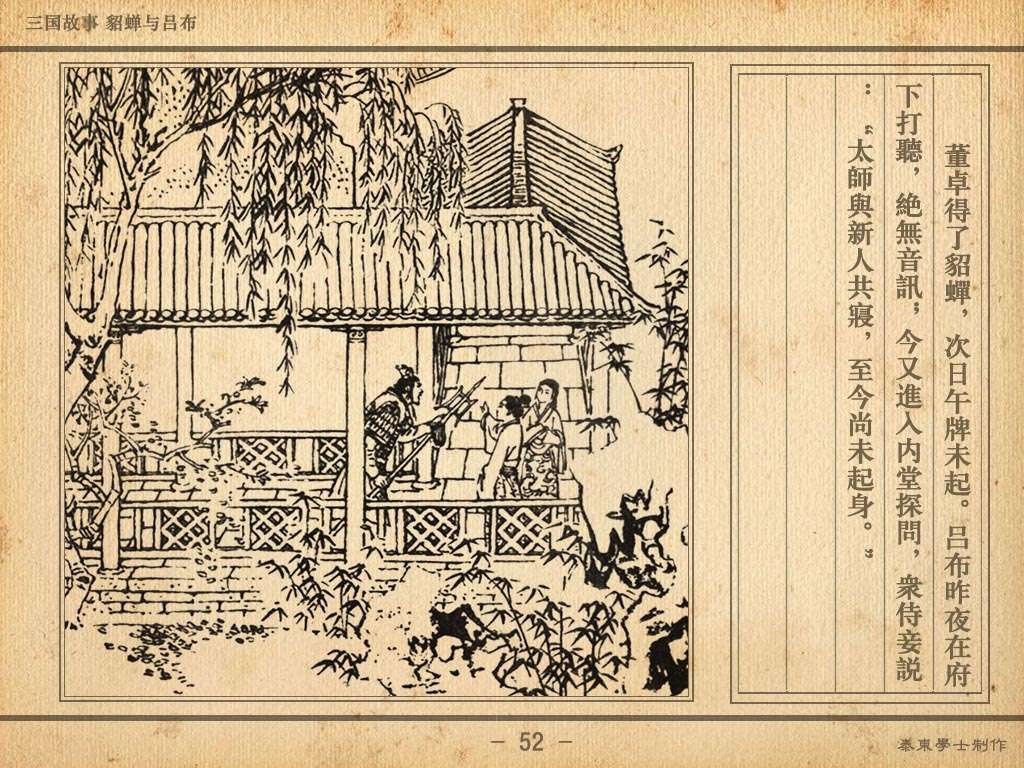 三国故事 貂蟬与吕布
董卓得了貂蟬，次日午牌未起。吕布昨夜在府
下打聽，絶無音訊；今又進入内堂探問，衆侍妾説
：“太師與新人共寢，至今尚未起身。”
— 52 —
秦東學士制作